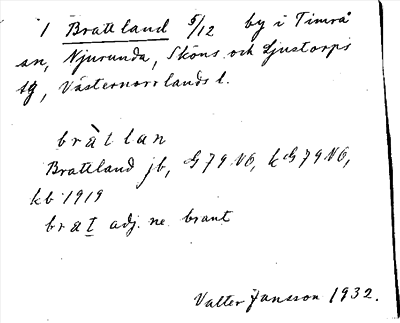 1 Brattland 5/12 by i Timrå
sn, Njurunda, Sköns och Ljustorps
tg, Västernorrlands l.
bràtlan
Brattland jb, G 79 NO, k G 79 NO,
kb 1919
brat adj. ne. brant
Valter Jansson 1932.